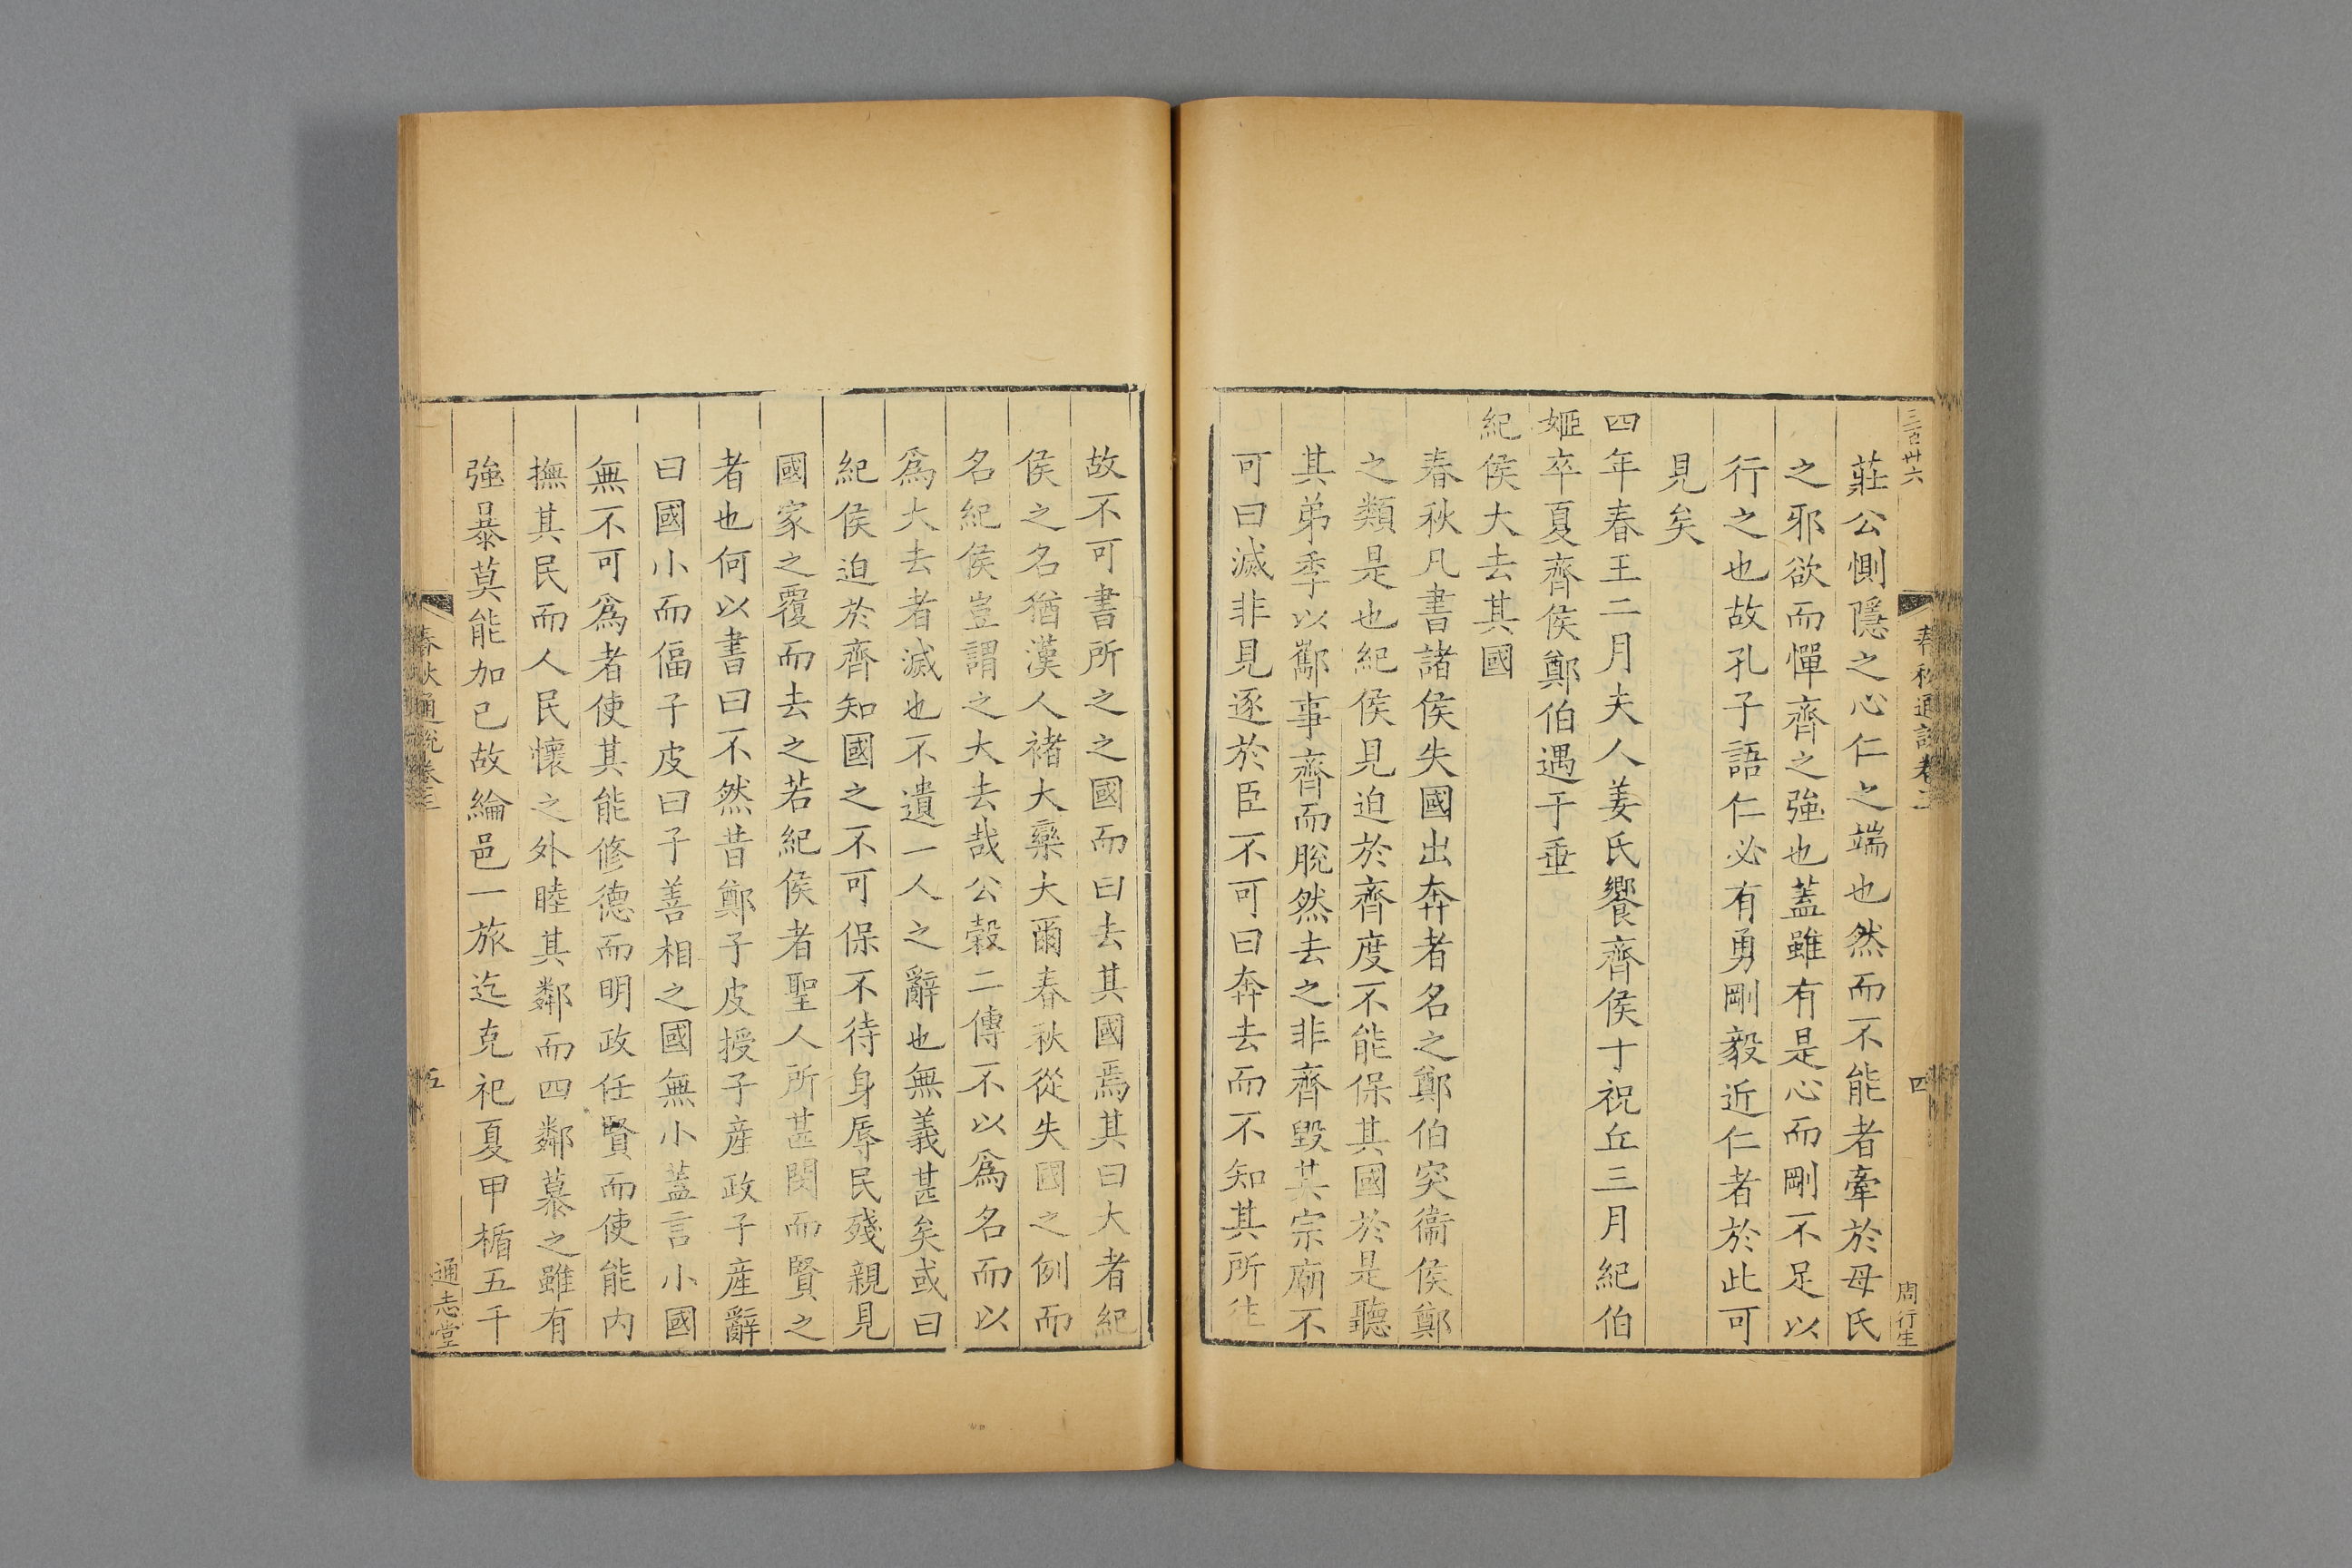 三百卅六
莊公惻隱之心仁之端也然而不能者牽於母氏
之邪欲而憚齊之強也蓋雖有是心而剛不足以
行之也故孔子語仁必有勇剛毅近仁者於此可
見矣
四年春王二月夫人姜氏饗齊侯于祝丘三月紀伯
姬卒夏齊侯鄭伯遇于垂
紀侯大去其國
春秋凡書諸侯失國出奔者名之鄭伯突衞侯鄭
之類是也紀侯見迫於齊度不能保其國於是聽
其弟季以酅事齊而脫然去之非齊毀其宗廟不
可曰滅非見逐於臣不可曰奔去而不知其所往
春秋通說卷三
四
周行生
故不可書所之之國而曰去其國焉其曰大者紀
侯之名猶漢人褚大欒大爾春秋從失國之例而
名紀侯豈謂之大去哉公穀二傳不以爲名而以
爲大去者滅也不遺一人之辭也無義甚矣或曰
紀侯迫於齊知國之不可保不待身辱民殘親見
國家之覆而去之若紀侯者聖人所甚閔而賢之
者也何以書曰不然昔鄭子皮授子産政子産辭
曰國小而偪子皮曰子善相之國無小蓋言小國
無不可爲者使其能修德而明政任賢而使能內
撫其民而人民懷之外睦其鄰而四鄰慕之雖有
強暴莫能加已故綸邑一旅迄克祀夏甲楯五千
春秋通說卷三
五
通志堂